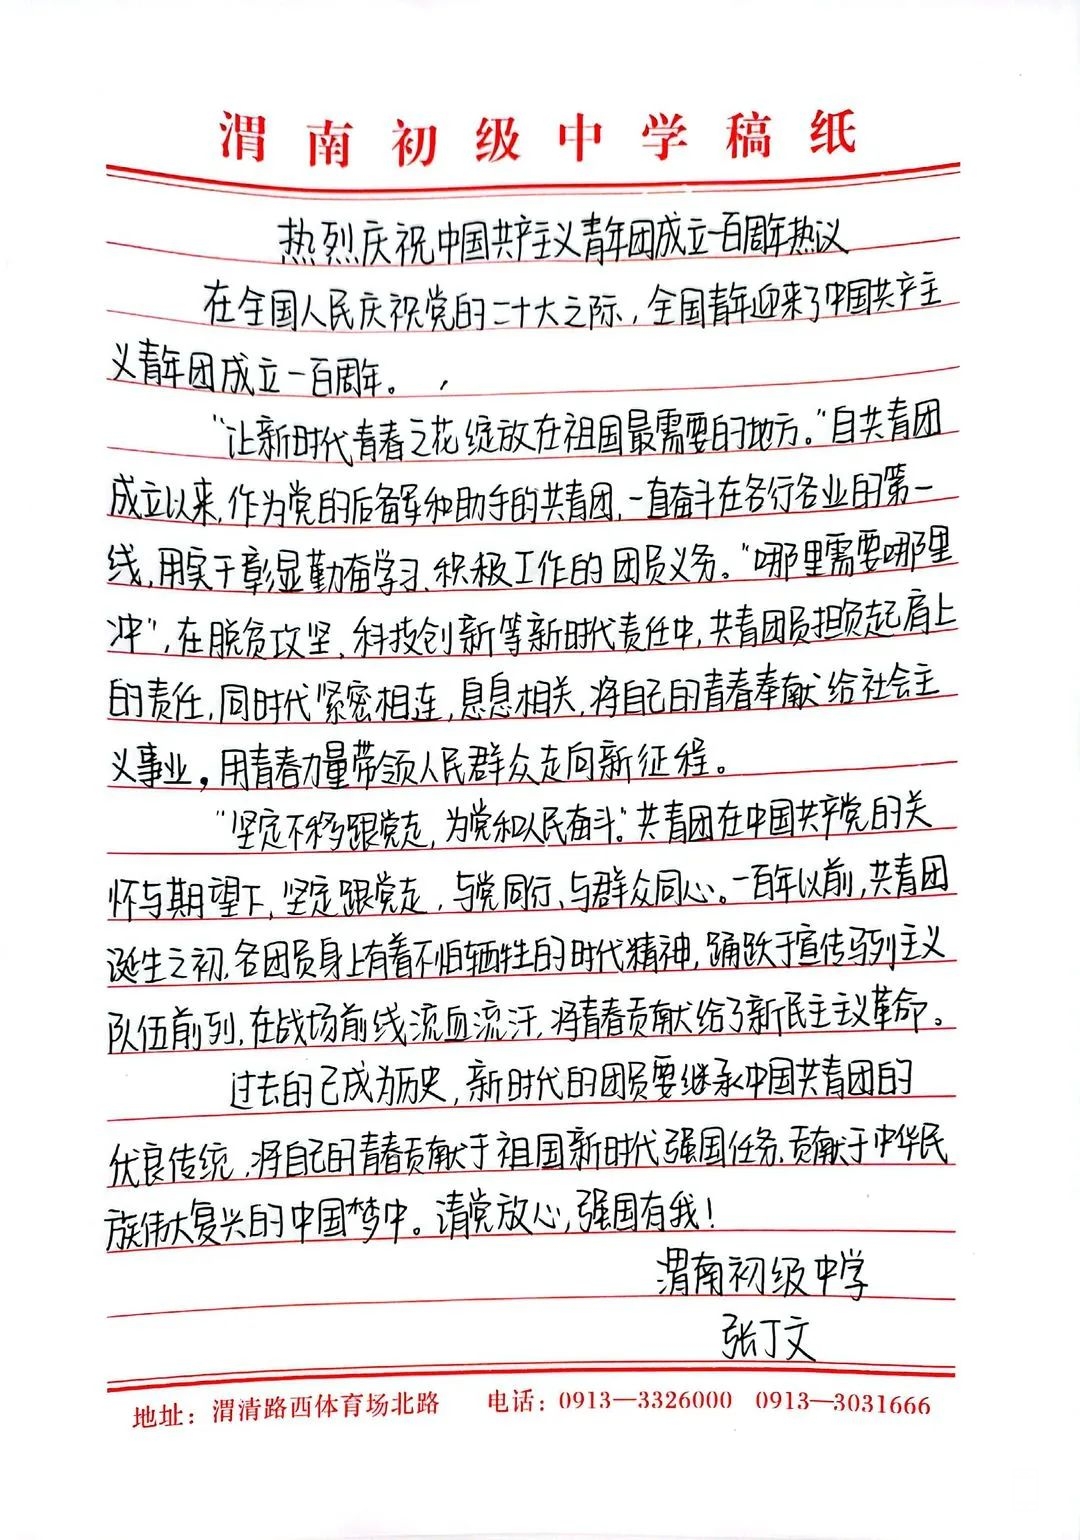 渭南初级中学稿纸
热烈庆祝中国共产主义青年团成立一百周年热议
在全国人民庆祝党的二十大之际，全国青年迎来了中国共产主
义青年团成立一百周年。
“让新时代青春之花绽放在祖国最需要的地方。”自共青团
成立以来，作为党的后备军和助手的共青团，一直奋斗在各行各业的第一
线，用实干彰显勤奋学习、积极工作的团员义务。“哪里需要哪里
冲”，在脱贫攻坚、科技创新等新时代责任中，共青团员担负起肩上
的责任，同时代紧密相连，息息相关，将自己的青春奉献给社会主
义事业，用青春力量带领人民群众走向新征程。
“坚定不移跟党走，为党和人民奋斗。”共青团在中国共产党的关
怀与期望下，坚定跟党走，与党同行、与群众同心。一百年以前，共青团
诞生之初，各团员身上有着不怕牺牲的时代精神，踊跃于宣传马列主义
队伍前列，在战场前线流血流汗，将青春贡献给了新民主主义革命。
过去的已成为历史，新时代的团员要继承中国共青团的
优良传统，将自己的青春贡献于祖国新时代强国任务、贡献于中华民
族伟大复兴的中国梦中。请党放心，强国有我！
渭南初级中学
张丁文
地址：渭清路西体育场北路 电话：0913—3326000 0913—3031666